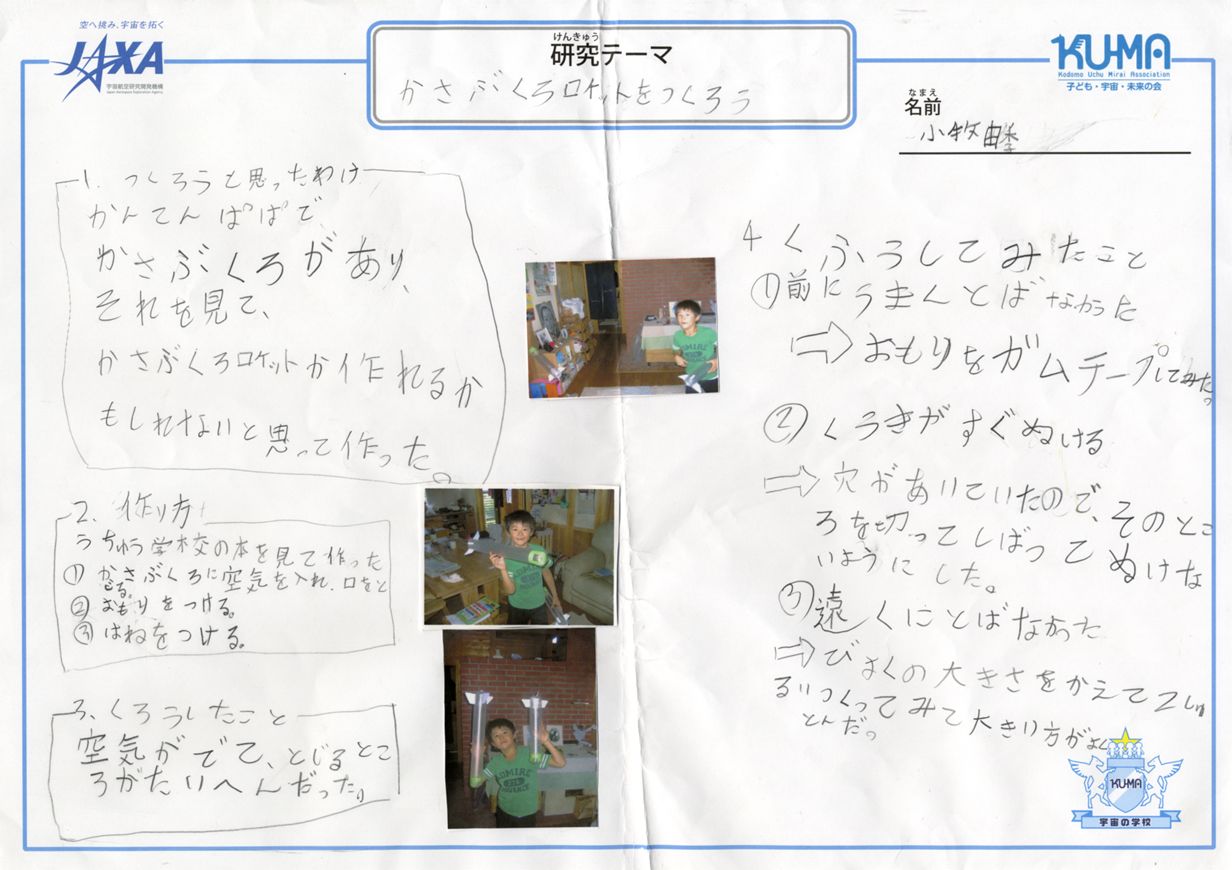 空へ挑み、宇宙を拓く
JAXA
宇宙航空研究開発機構
Japan Aerospace Exploration Agency
けんきゅう
研究テーマ
かさぶくろロケットをつくろう
KU-MA
Kodomo Uchu Mirai Association
子ども・宇宙・未来の会
なまえ
名前
小牧由季
1. つくろうと思ったわけ
かんてんぱぱで
かさぶくろがあり、
それを見て、
かさぶくろロケットが作れるか
もしれないと思って作った。
2. 作り方
うちゅう学校の本を見て作った
① かさぶくろに空気を入れ、口をと
じる。
② おもりをつける。
③ はねをつける。
3、くろうしたこと
空気がでて、とじるとこ
ろがたいへんだった。
4 くふうしてみたこと
①前にうまくとばなかった
⇨おもりをガムテープしてみた。
②くうきがすぐぬける
⇨穴があいていたので、そのとこ
ろを切ってしばってぬけな
いようにした。
③遠くにとばなかった
⇨びよくの大きさをかえて2しゅ
るいつくってみて大きい方がよく
とんだ。
KUMA
宇宙の学校